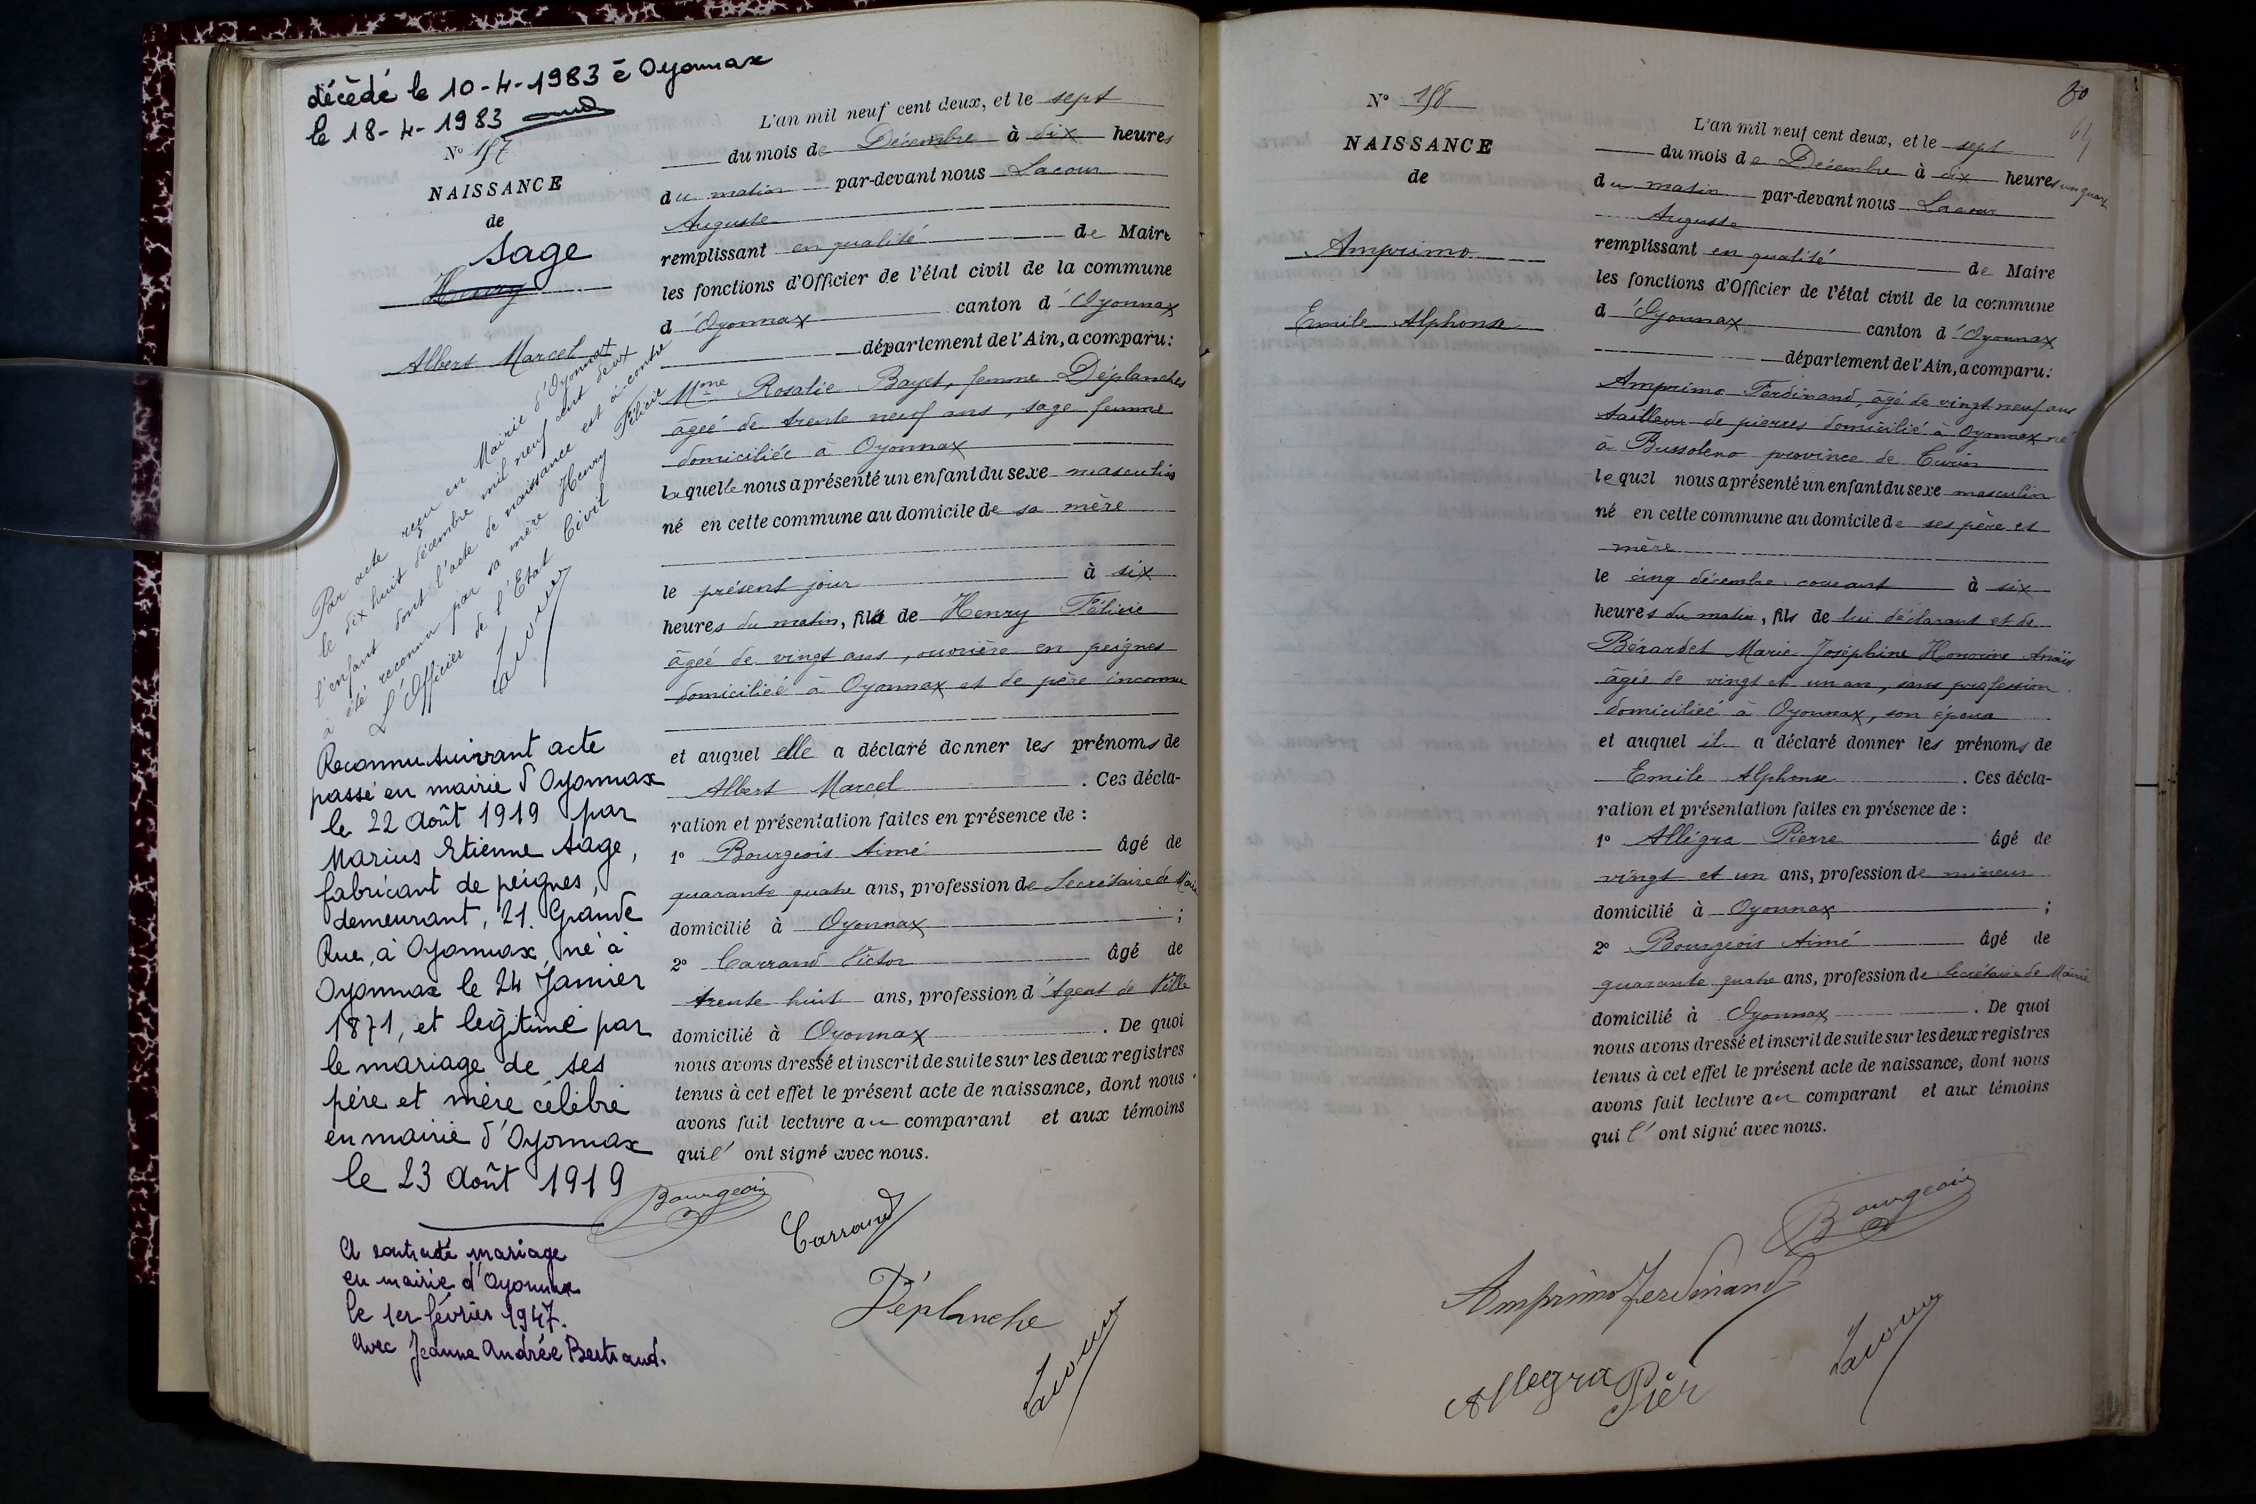 décèdé le 10-4-1983 à Oyonnax
le 18-4-1983
N° 157
NAISSANCE
de
Sage
Henry
Albert Marcel
Par acte reçu en Mairie d'Oyonnax
le dix huit décembre mil neuf cent deux
l'enfant dont l'acte de naissance est ci-contre
a été reconnu par sa mère Henry Félicie
L'Officier de l'Etat Civil
Lacour
Reconnu suivant acte
passé en mairie d'Oyonnax
le 22 Août 1919 par
Marius Etienne Sage,
fabricant de peignes,
demeurant, 21. Grande
Rue, à Oyonnax, né à
Oyonnax le 24 Janvier
1871, et légitimé par
le mariage de ses
père et mère célébré
en mairie d'Oyonnax
le 23 Août 1919
A contracté mariage
en mairie d'Oyonnax
le 1er février 1947.
avec Jeanne Andrée Bertraud.
L'an mil neuf cent deux, et le sept
du mois de Décembre à dix heures
du matin par-devant nous Lacour
Auguste
remplissant en qualité de Maire
les fonctions d'Officier de l'état civil de la commune
d'Oyonnax canton d'Oyonnax
département de l'Ain, a comparu:
Mme Rosalie Bayet, femme Déplanches
âgée de trente neuf ans, sage femme
domiciliée à Oyonnax
laquelle nous a présenté un enfant du sexe masculin
né en cette commune au domicile de sa mère
le présent jour à six
heures du matin, fils de Henry Félicie
âgée de vingt ans, ouvrière en peignes
domiciliée à Oyonnax et de père inconnu
et auquel elle a déclaré donner les prénoms de
Albert Marcel. Ces décla-
ration et présentation faites en présence de :
1° Bourgeois Aimé âgé de
quarante quatre ans, profession de Secrétaire de Mairie
domicilié à Oyonnax ;
2° Carrand Victor âgé de
trente huit ans, profession d'Agent de Ville
domicilié à Oyonnax. De quoi
nous avons dressé et inscrit de suite sur les deux registres
tenus à cet effet le présent acte de naissance, dont nous
avons fait lecture au comparant et aux témoins
qui l'ont signé avec nous.
Bourgeois
Carrand
Déplanche
Lacour
80
N° 158
NAISSANCE
de
Amprimo
Emile Alphonse
L'an mil neuf cent deux, et le sept
du mois de Décembre à dix heures un quart
du matin par-devant nous Lacour
Auguste
remplissant en qualité de Maire
les fonctions d'Officier de l'état civil de la commune
d'Oyonnax canton d'Oyonnax
département de l'Ain, a comparu:
Amprimo Ferdinand, âgé de vingt neuf ans
tailleur de pierres domicilié à Oyonnax né
à Bussoleno province de Turin
lequel nous a présenté un enfant du sexe masculin
né en cette commune au domicile de ses père et
mère
le cinq décembre courant à six
heures du matin, fils de lui déclarant et de
Bérardet Marie Joséphine Honorine Anaïs
âgée de vingt et un an, sans profession
domiciliée à Oyonnax, son épouse
et auquel il a déclaré donner les prénoms de
Emile Alphonse. Ces décla-
ration et présentation faites en présence de :
1° Alligra Pierre âgé de
vingt et un ans, profession de mineur
domicilié à Oyonnax ;
2° Bourgeois Aimé âgé de
quarante quatre ans, profession de Secrétaire de Mairie
domicilié à Oyonnax. De quoi
nous avons dressé et inscrit de suite sur les deux registres
tenus à cet effet le présent acte de naissance, dont nous
avons fait lecture au comparant et aux témoins
qui l'ont signé avec nous.
Bourgeois
Amprimo Ferdinand
Lacour
Allegra Pier